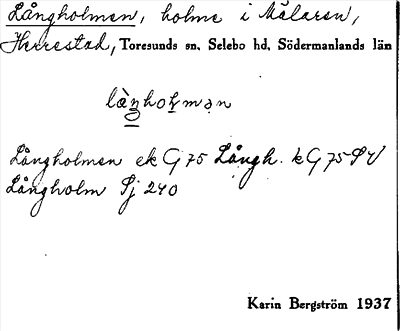 Långholmen, holme i Mälaren,
Herrestad, Toresunds sn, Selebo hd, Södermanlands län
Långholmen ek G 75 Långh. kG 75 SV
Långholm Sj 240
Karin Bergström 1937